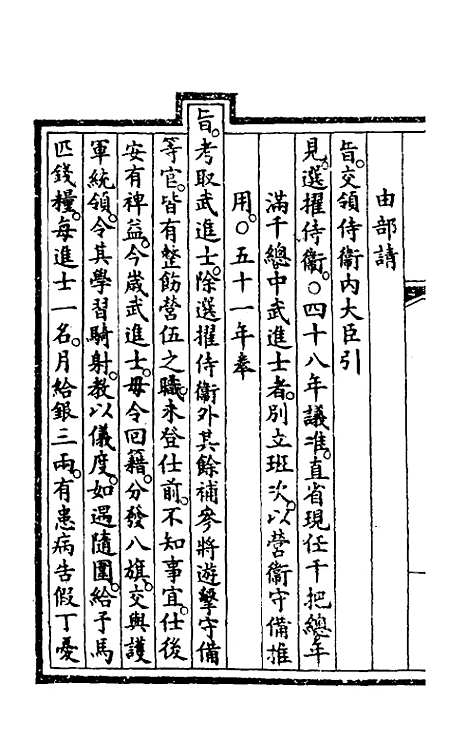 由部請
旨。交領侍衛內大臣引
見。選擢侍衛。○四十八年議准。直省現任千把總。年
滿千總。中武進士者。別立班次。以營衛守備推
用。○五十一年奉
旨。考取武進士。除選擢侍衛外。其餘補參將遊擊守備
等官。皆有整飭營伍之職。未登仕前。不知事宜。仕後
安有裨益。今歲武進士。毋令回籍。分發八旗。交與護
軍統領。令其學習騎射。教以儀度。如遇隨圍。給予馬
匹錢糧。每進士一名。月給銀三兩。有患病告假丁憂